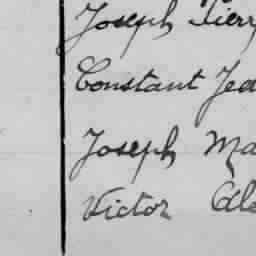 Joseph Pierr
Constant Jea
Joseph Ma
Victor Ale